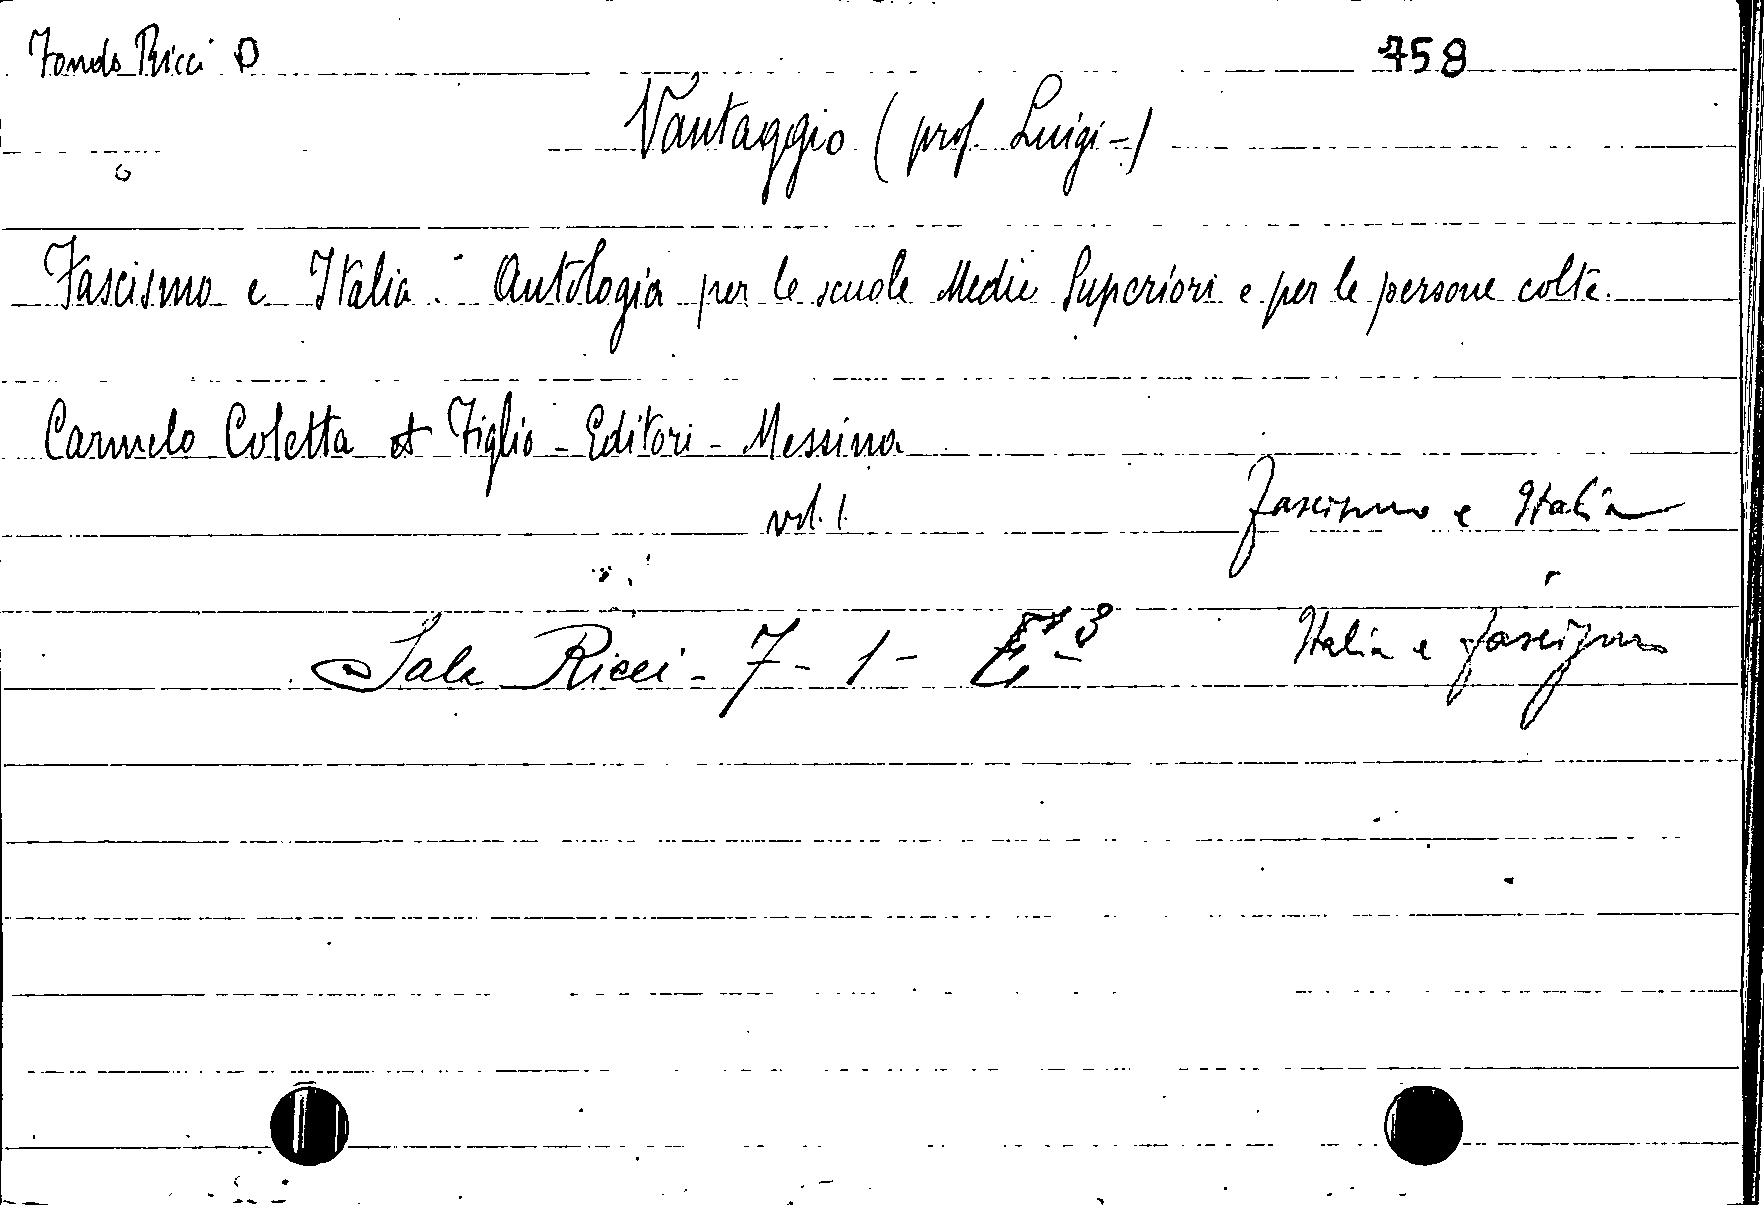 Fondo Ricci D 758
Vantaggio (prof. Luigi-)
Fascismo e Italia: Antologia per le scuole Medie Superiori e per le persone colte.
Carmelo Coletta et Figlio - Editori - Messina
vol. 1.
Fascismo e Italia
Sala Ricci - 7 - 1 -
Italia e fascismo